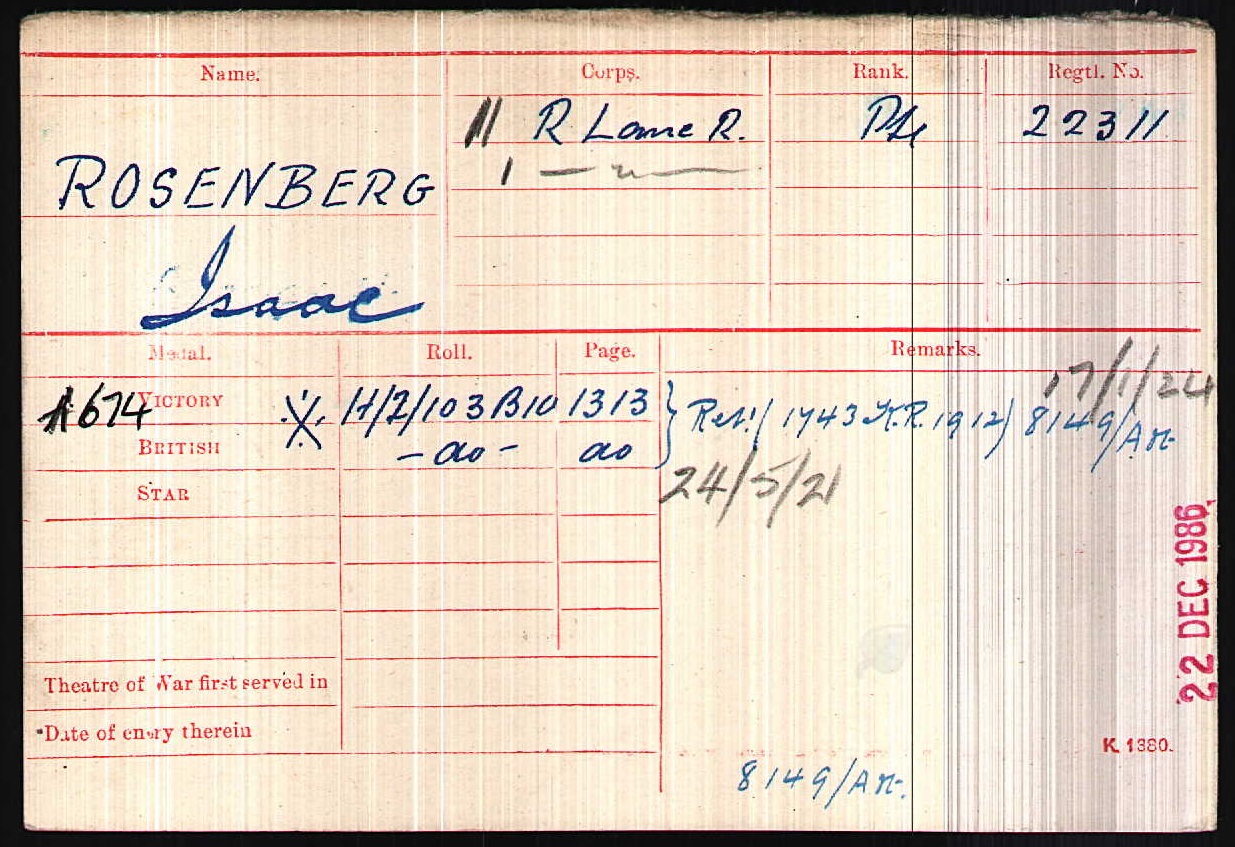 Name. Corps. Rank. Regtl. No.
11 R Lanc R. Pte 22311
1 — " —
ROSENBERG
Isaac
Medal. Roll. Page. Remarks.
17/1/24
A674 VICTORY H/2/103 B10 1313 } Ret! (1743 K.R. 1912) 8149/Adt.
BRITISH - do - do
STAR 24/5/21
Theatre of War first served in
Date of entry therein
K. 1380.
8149/Adt.
22 DEC 1986